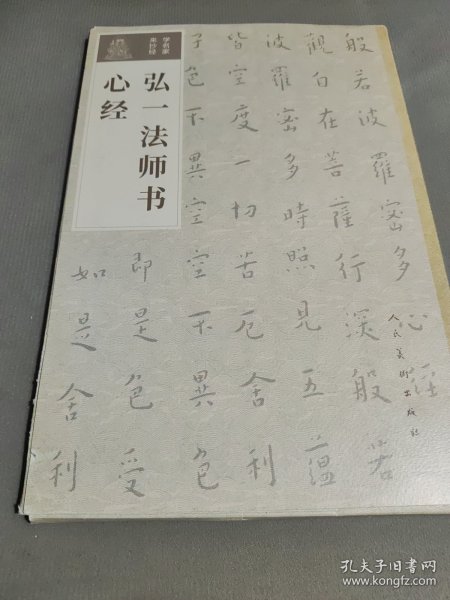 学名家
来抄经
弘一法师书
心经
般若波羅蜜多心経
觀自在菩薩行深般若
波羅蜜多時照見五蘊
皆空度一切苦厄舍利
子色不異空空不異色
即是色受
如是舍利
人民美術出版社
孔夫子旧书网
www.kongfz.com